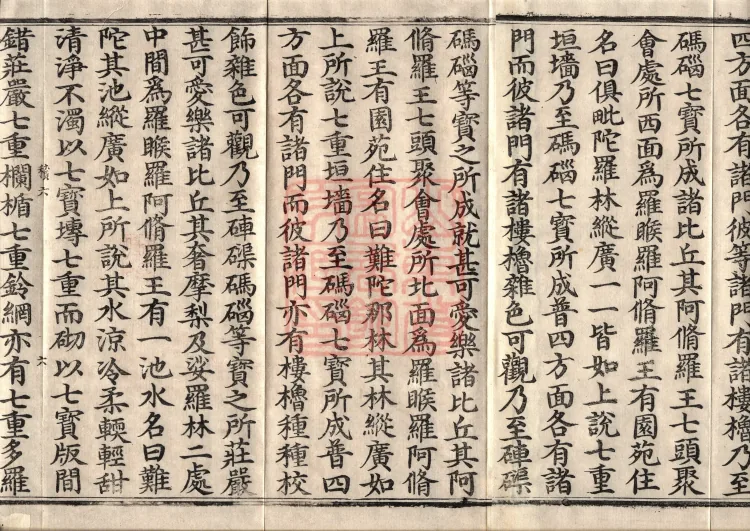 四方面各有諸門彼等諸門有諸樓櫓乃至
碼碯七寶所成諸比丘其阿脩羅王七頭聚
會處所西面爲羅睺羅阿脩羅王有園苑住
名曰俱毗陀羅林縱廣一一皆如上說七重
垣墻乃至碼碯七寶所成普四方面各有諸
門而彼諸門有諸樓櫓雜色可觀乃至硨磲
碼碯等寶之所成就甚可愛樂諸比丘其阿
脩羅王七頭聚會處所北面爲羅睺羅阿脩
羅王有園苑住名曰難陀那林其林縱廣如
上所說七重垣墻乃至碼碯七寶所成普四
方面各有諸門而彼諸門亦有樓櫓種種校
飾雜色可觀乃至硨磲碼碯等寶之所莊嚴
甚可愛樂諸比丘其奢摩梨及娑羅林二處
中間爲羅睺羅阿脩羅王有一池水名曰難
陀其池縱廣如上所說其水涼冷柔輭輕甜
清淨不濁以七寶塼七重而砌以七寶版間
六
錯莊嚴七重欄楯七重鈴網亦有七重多羅